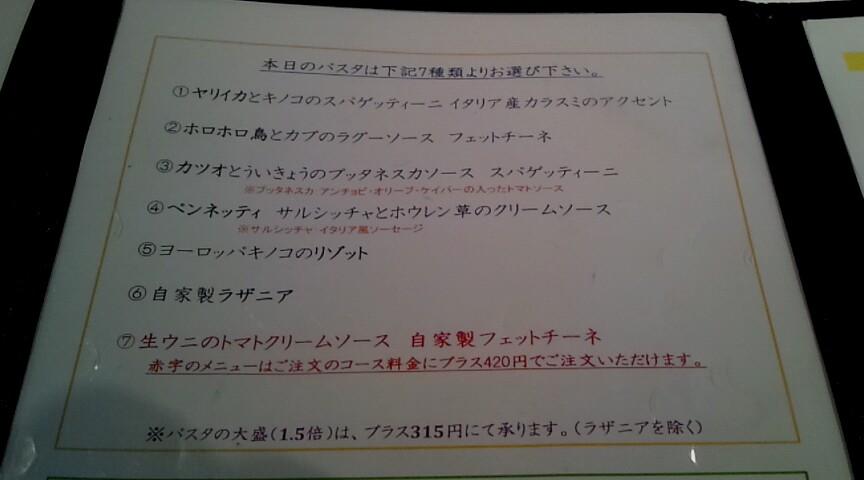 本日のパスタは下記7種類よりお選び下さい。
①ヤリイカとキノコのスパゲッティーニ イタリア産カラスミのアクセント
②ホロホロ鳥とカブのラグーソース フェットチーネ
③カツオとういきょうのプッタネスカソース スパゲッティーニ
※プッタネスカ アンチョビ・オリーブ・ケイパーの入ったトマトソース
④ペンネッティ サルシッチャとホウレン草のクリームソース
※サルシッチャ イタリア風ソーセージ
⑤ヨーロッパキノコのリゾット
⑥自家製ラザニア
⑦生ウニのトマトクリームソース 自家製フェットチーネ
赤字のメニューはご注文のコース料金にプラス420円でご注文いただけます。
※パスタの大盛(1.5倍)は、プラス315円にて承ります。(ラザニアを除く)